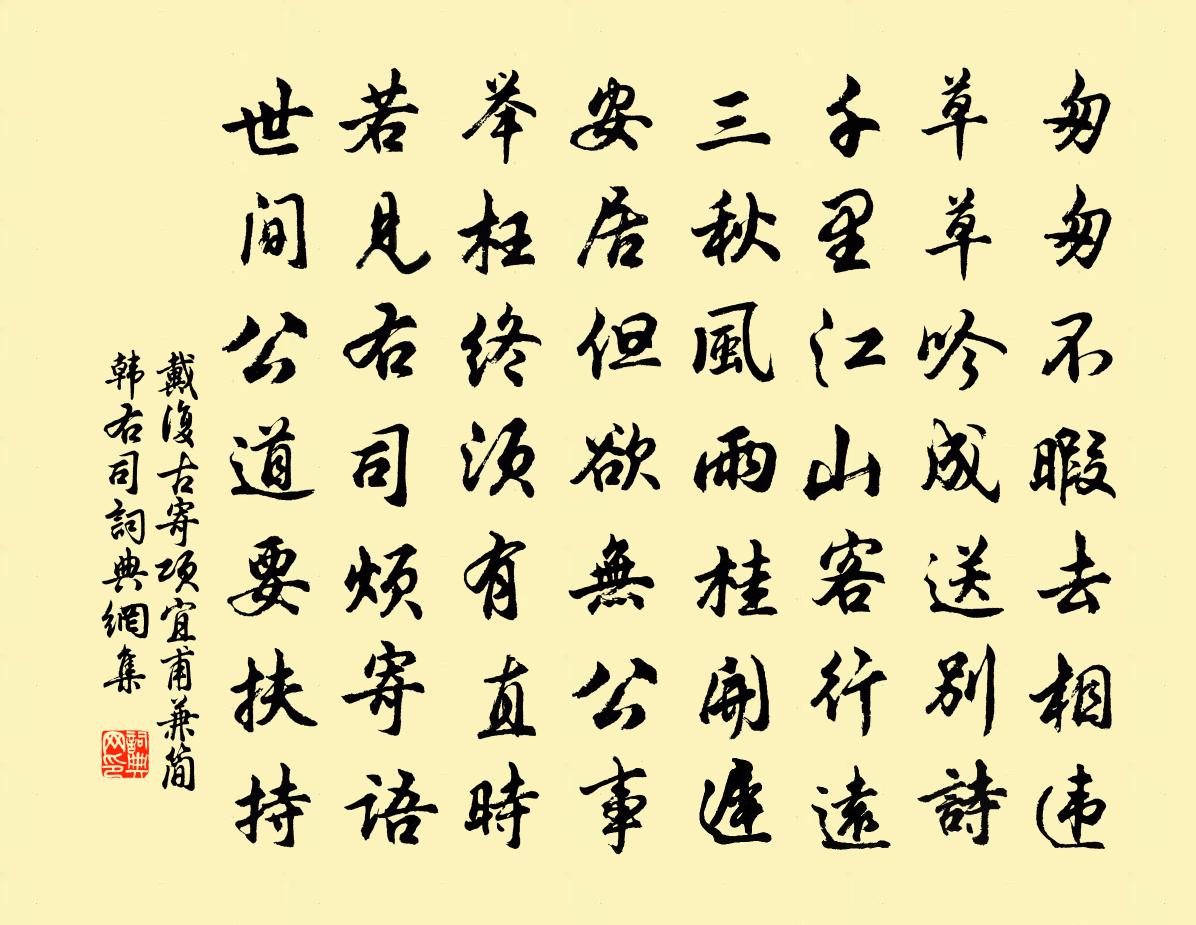 匆匆不暇去相违
草草吟成送别詩
千里江山客行遠
三秋風雨桂開遲
安居但欲無公事
举枉终须有直時
若見右司烦寄語
世间公道要扶持
戴復古寄项宜甫兼简
韩右司詞典網集
詞典网印